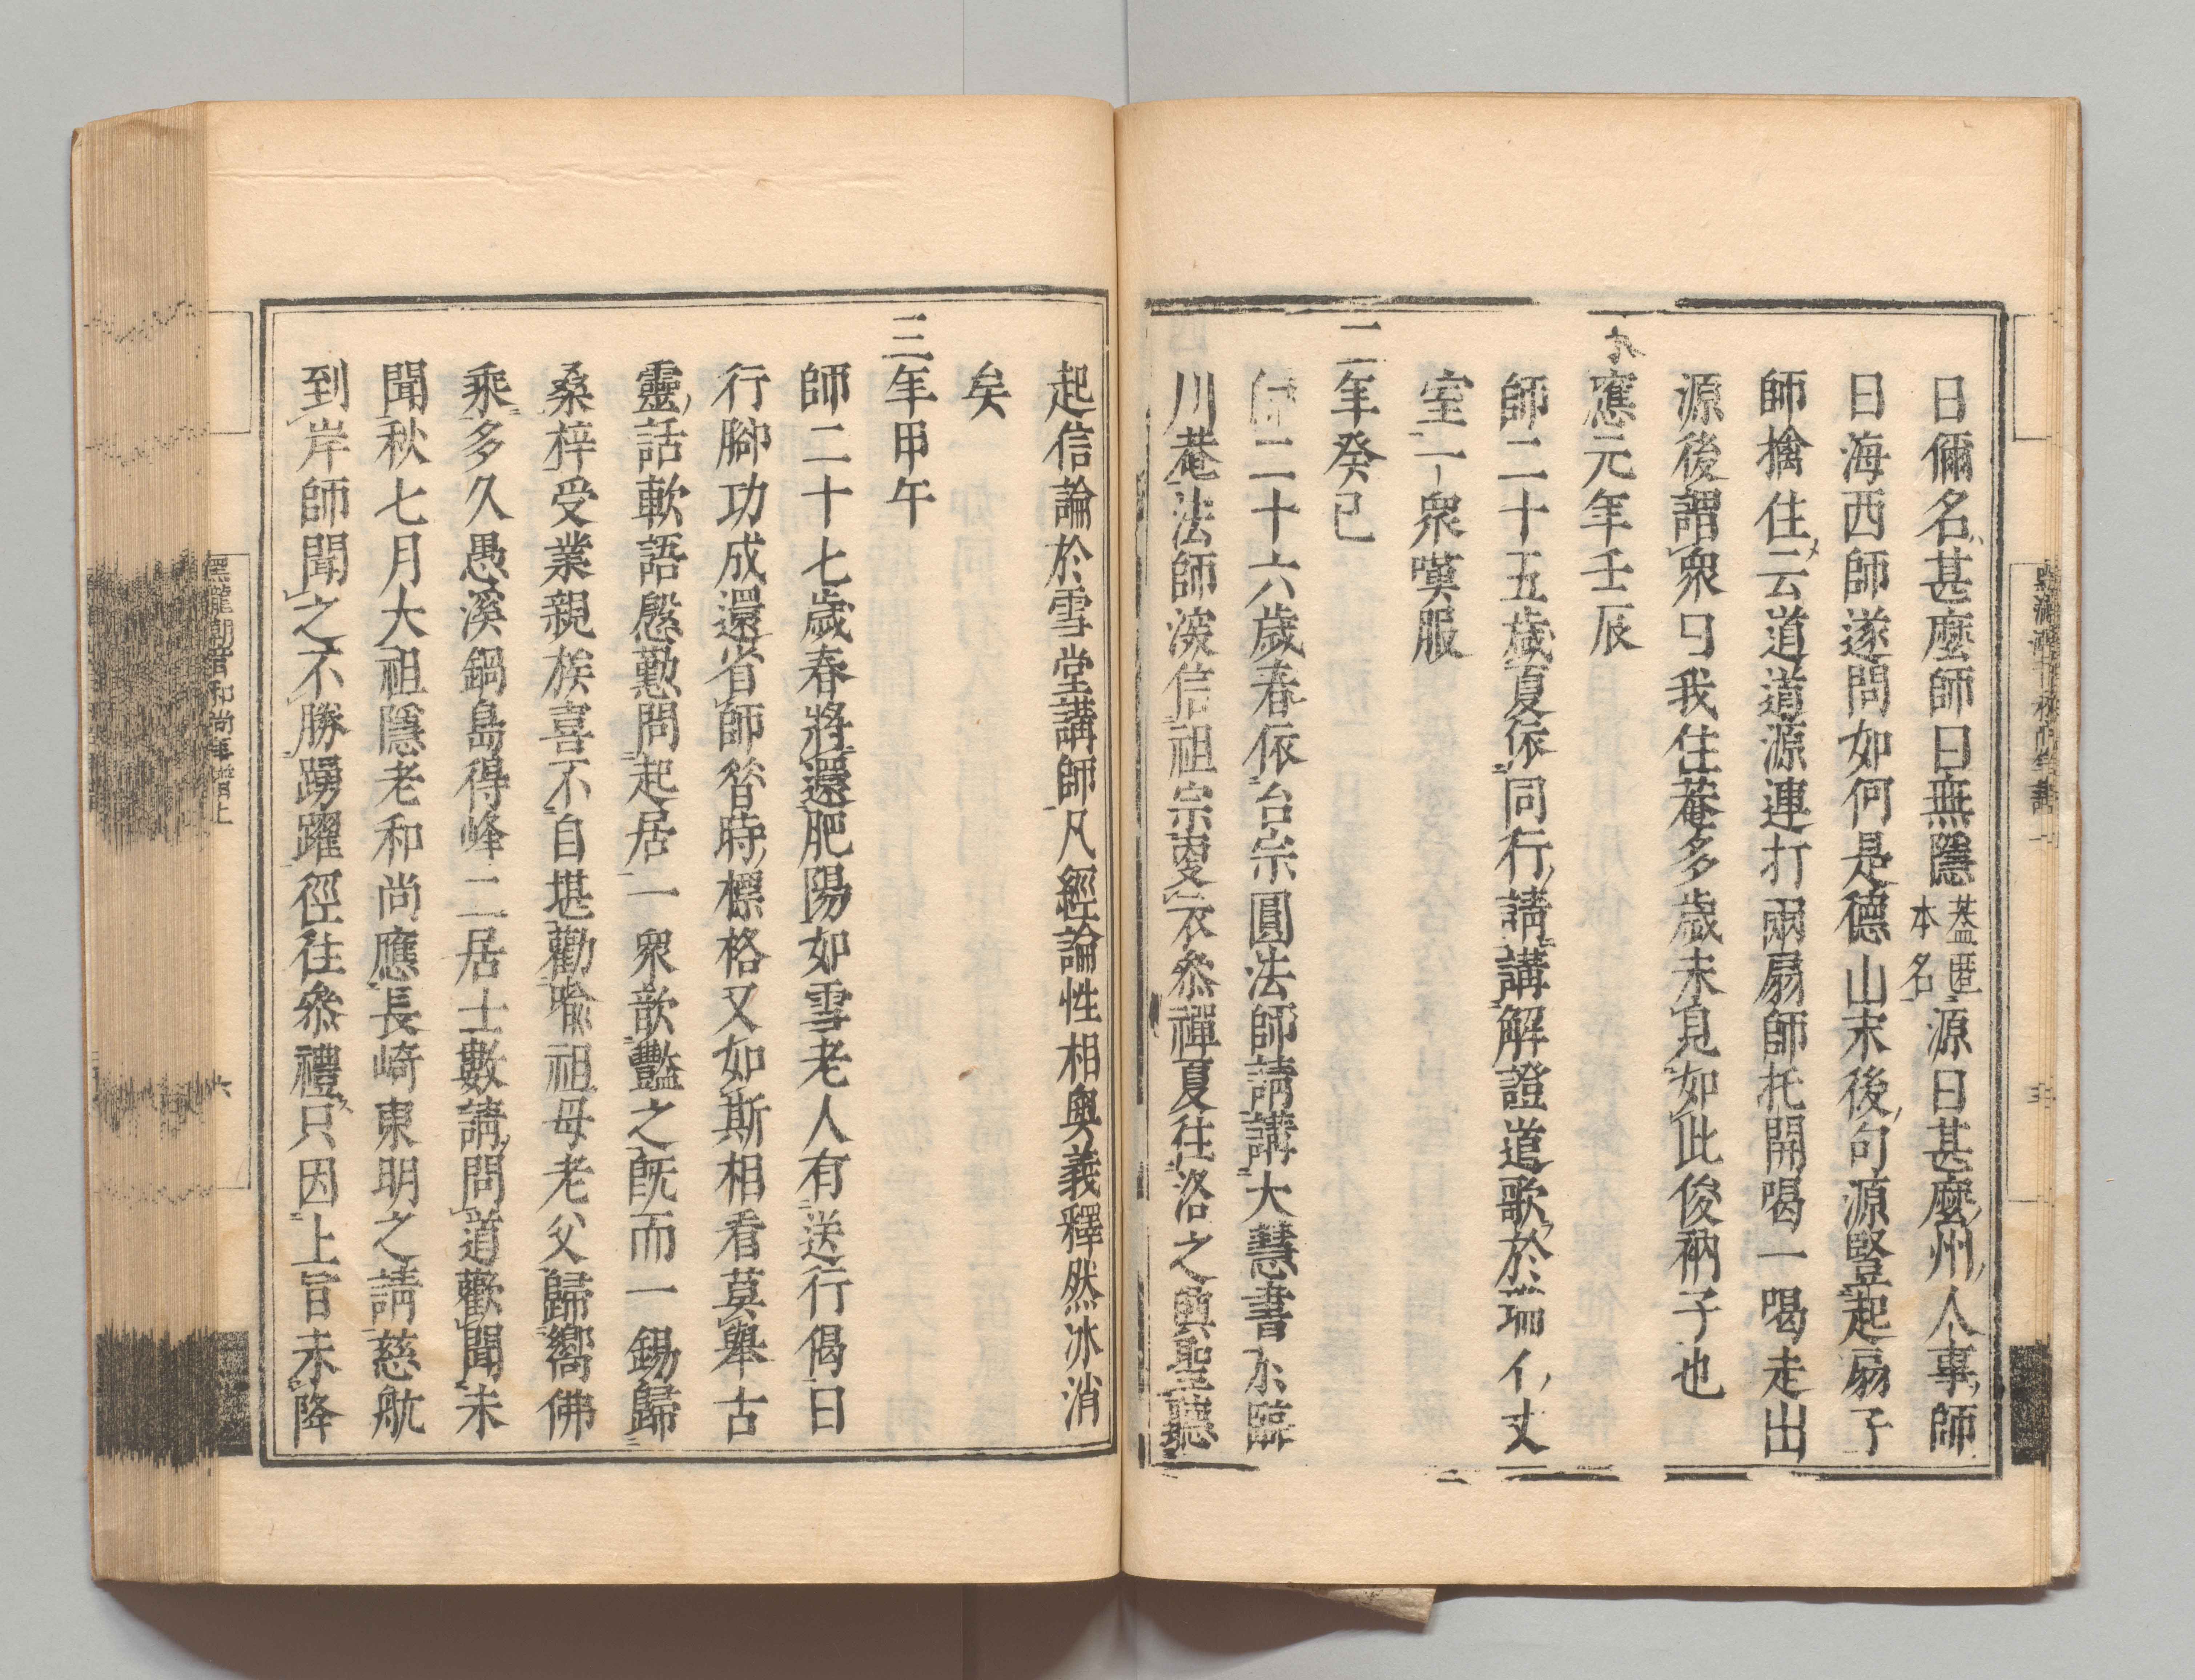 曰儞名甚麼師曰無隱蓋匿本名源曰甚麼州人事師
曰海西師遂問如何是德山末後句源豎起扇子
師擒住云道道源連打兩扇師托開喝一喝走出
源後謂衆曰我住菴多歲未見如此俊衲子也
應元年壬辰
師二十五歲夏依同行請講解證道歌於丈
室一衆嘆服
二年癸巳
師二十六歲春依台宗圓法師請講大慧書於臨
川菴法師深信祖宗更衣參禪夏往洛之眞聖聽
起信論於雪堂講師凡經論性相奧義釋然冰消
矣
三年甲午
師二十七歲春將還肥陽如雪老人有送行偈曰
行腳功成還省師答時標格又如斯相看莫舉古
靈話軟語慇懃問起居一衆歆豔之旣而一錫歸
桑梓受業親族喜不自堪勸喩祖母老父歸嚮佛
乘多久愚溪鍋島得峰二居士數請問道歡聞未
聞秋七月大祖隱老和尚應長崎東明之請慈航
到岸師聞之不勝踴躍徑往參禮只因上旨未降
潮音和尚年譜上
六